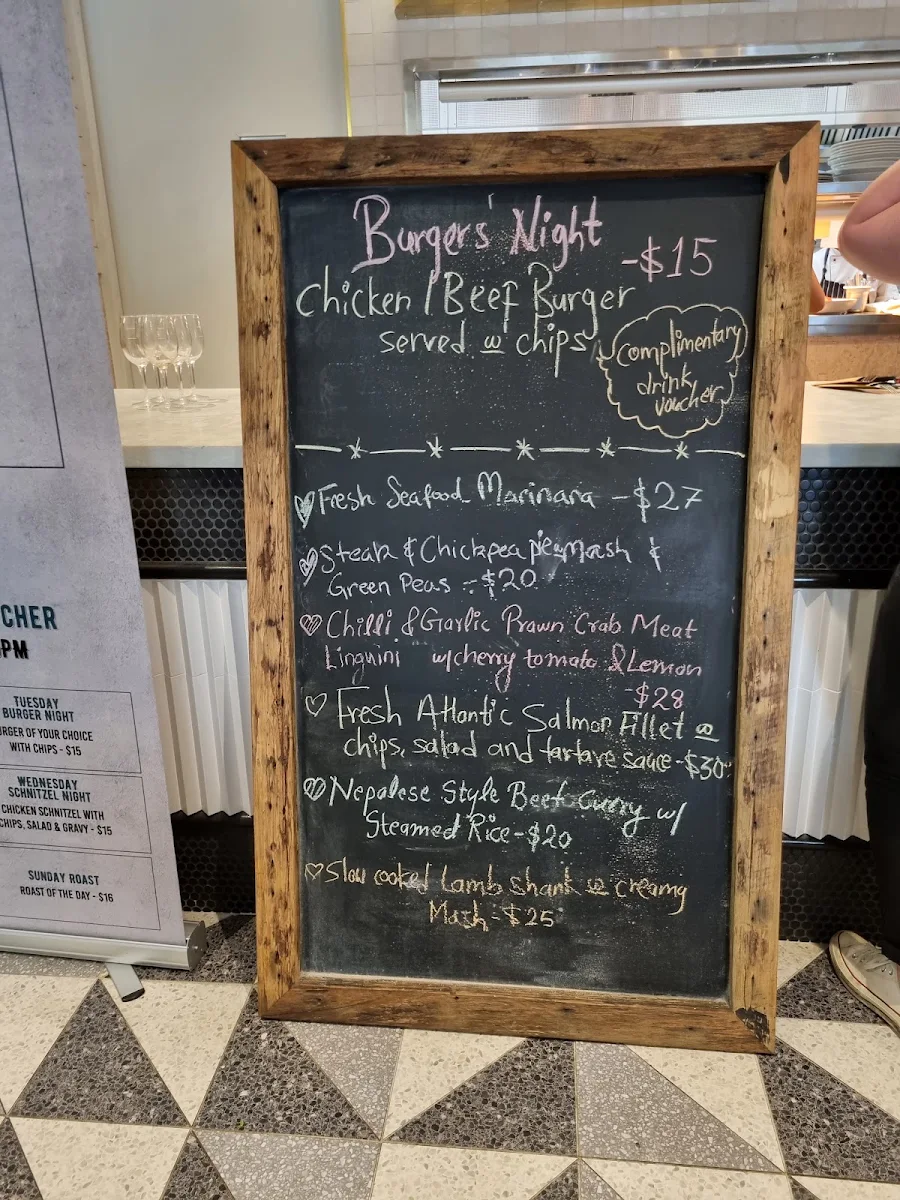 Burgers' Night
-$15
Chicken / Beef Burger
served w chips
complimentary
drink
voucher
Fresh Seafood Marinara - $27
Steak & Chickpea pie & mash &
Green Peas - $20
Chilli & Garlic Prawn Crab Meat
Linguini w/cherry tomato & Lemon
$28
Fresh Atlantic Salmon Fillet w
chips, salad and tartare sauce - $30
Nepalese Style Beef Curry w/
Steamed Rice - $20
Slow cooked Lamb shank w creamy
Mash - $25
CHER
PM
TUESDAY
BURGER NIGHT
URGER OF YOUR CHOICE
WITH CHIPS - $15
WEDNESDAY
SCHNITZEL NIGHT
CHICKEN SCHNITZEL WITH
CHIPS, SALAD & GRAVY - $15
SUNDAY ROAST
ROAST OF THE DAY - $16